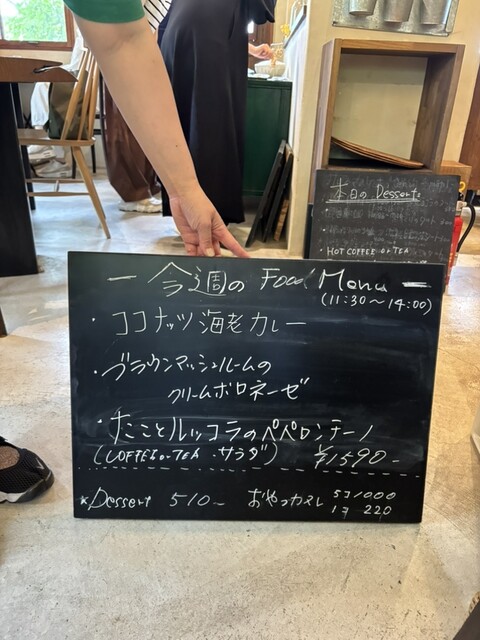 本日の Desserts
HOT COFFEE or TEA
— 今週の Food Menu —
(11:30〜14:00)
・ココナッツ海老カレー
・ブラウンマッシュルームの
クリームボロネーゼ
・たことルッコラのペペロンチーノ
(COFFEE or TEA ・サラダ) ¥1590-
*Dessert 510〜 おやつカヌレ 5コ1000
1コ 220